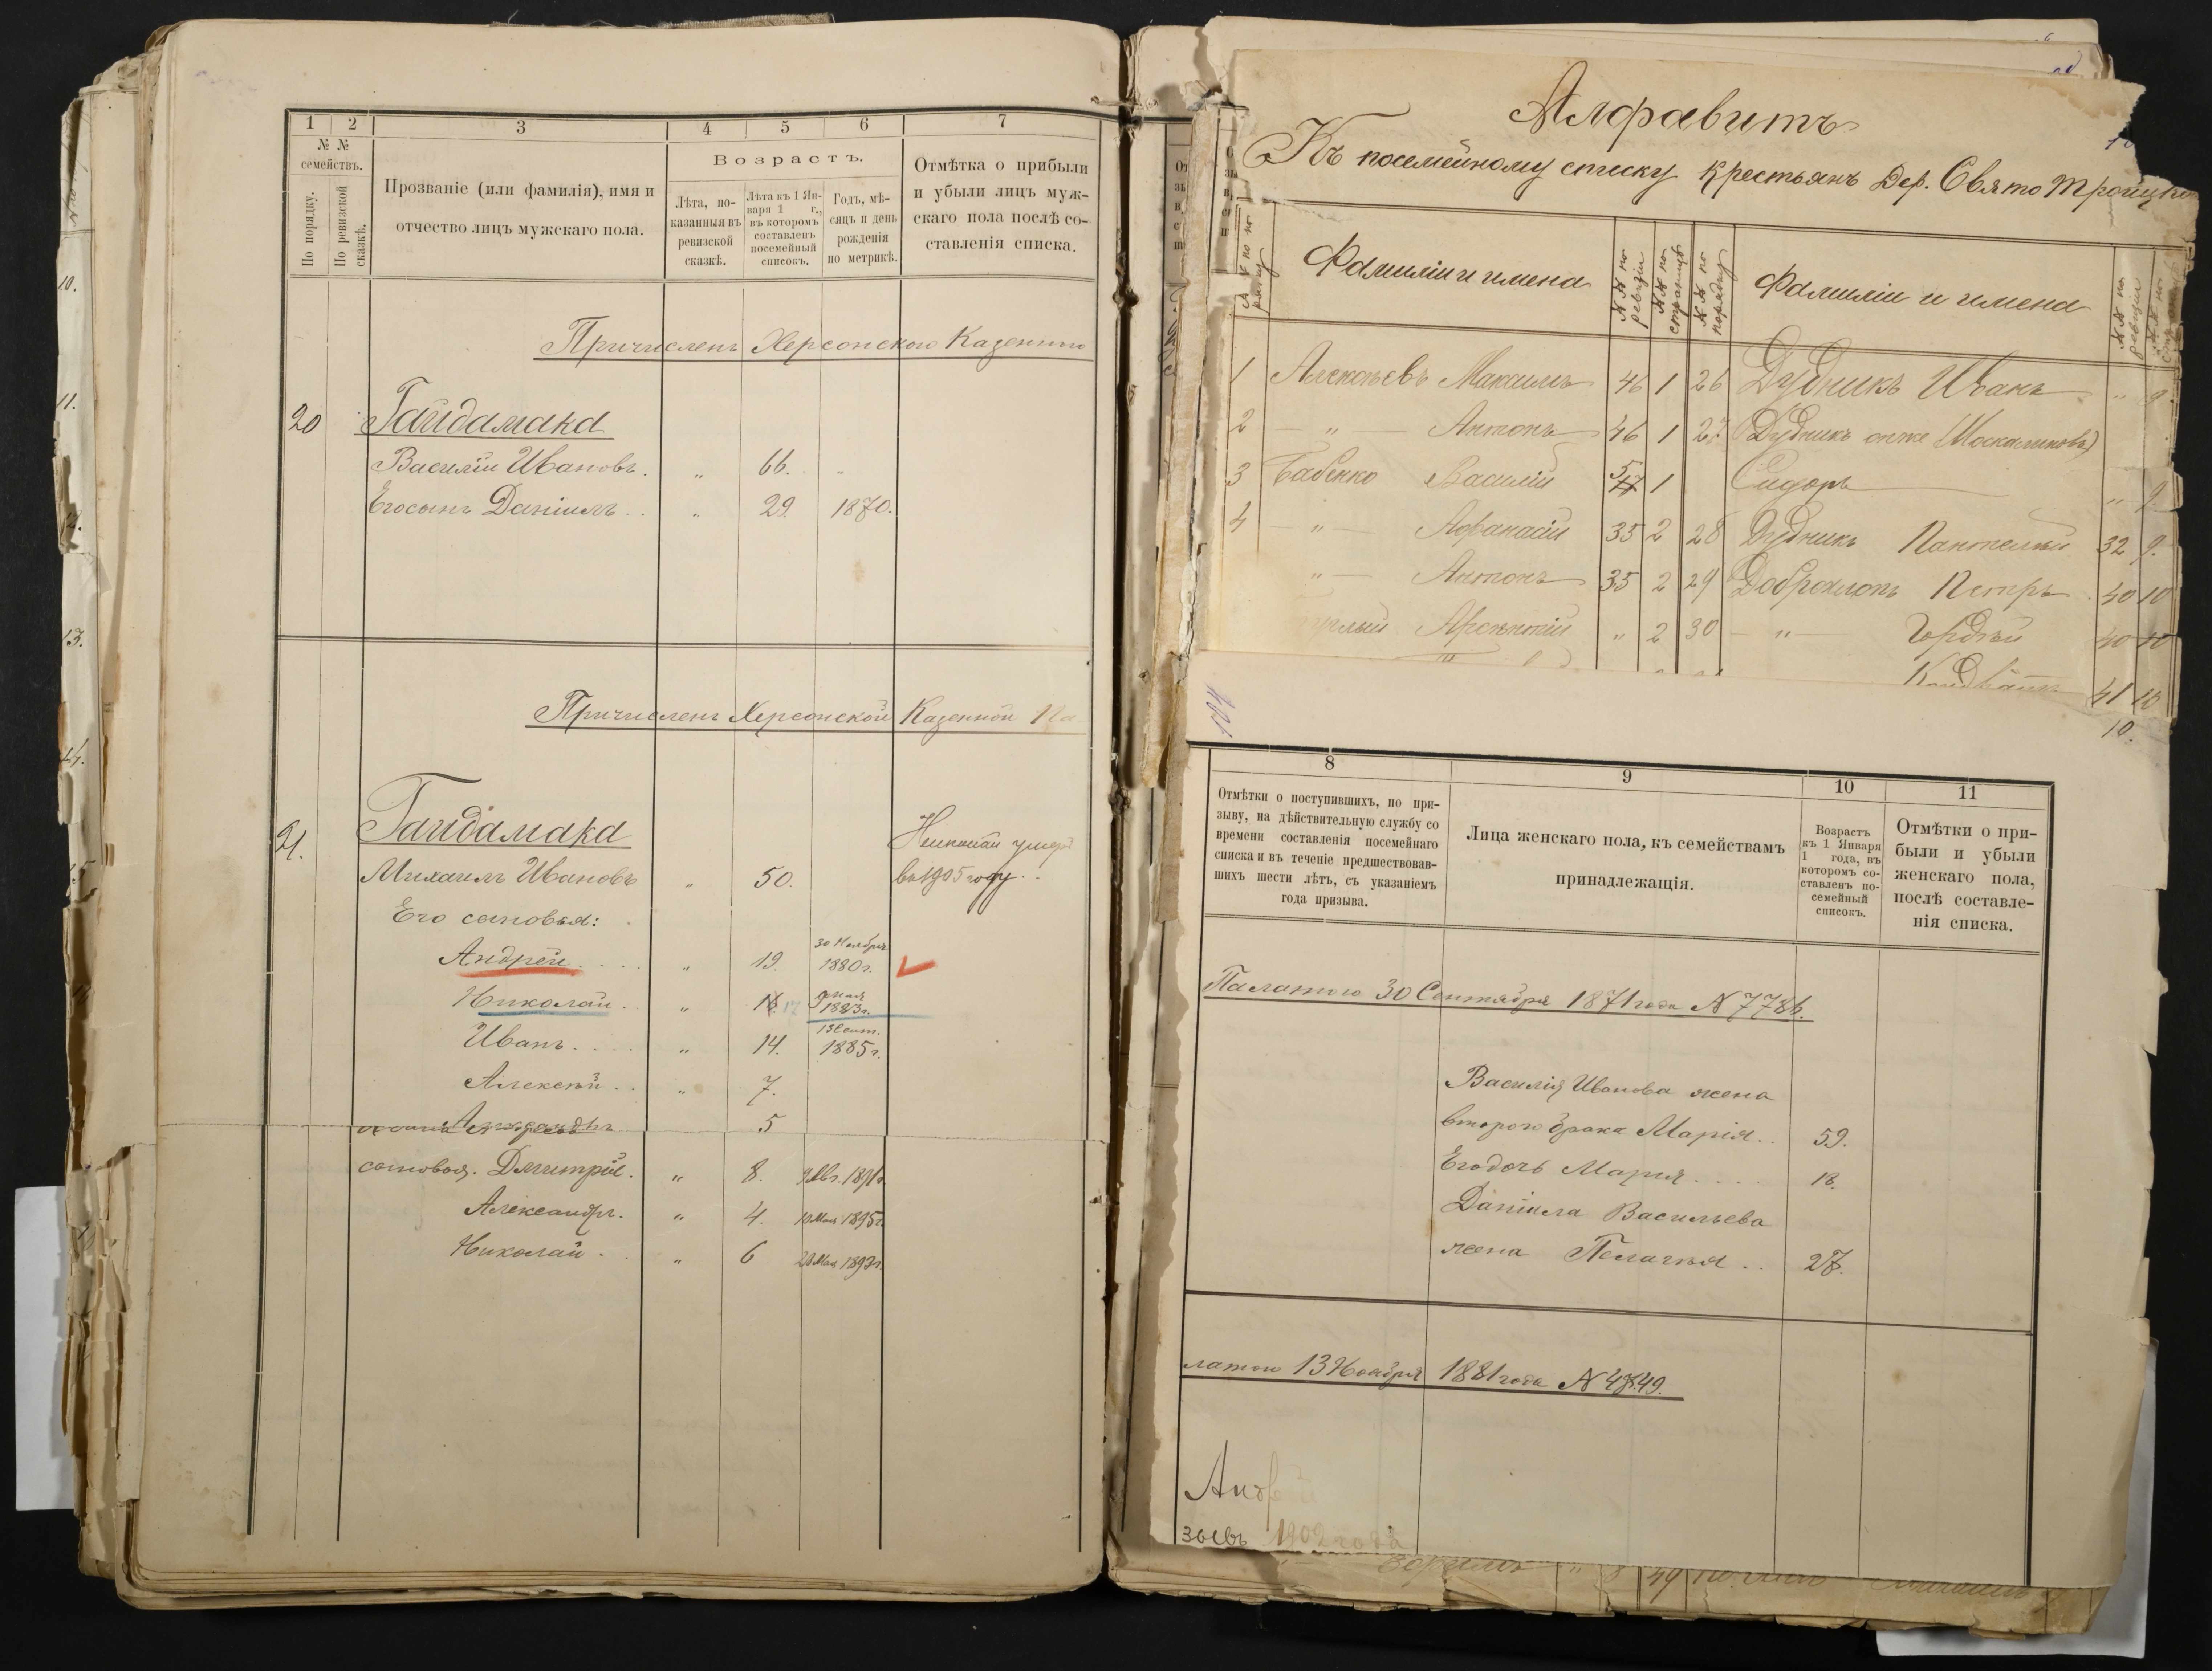 1 2 3 4 5 6 7
№ №
семействъ.
По порядку.
По ревизской сказкѣ.
Прозваніе (или фамилія), имя и
отчество лицъ мужскаго пола.
Возрастъ.
Лѣта, по-
казанныя въ
ревизской
сказкѣ.
Лѣта къ 1 Ян-
варя 1 г.,
въ которомъ
составленъ
посемейный
списокъ.
Годъ, мѣ-
сяцъ и день
рожденія
по метрикѣ.
Отмѣтка о прибыли
и убыли лицъ муж-
скаго пола послѣ со-
ставленія списка.
Причисленъ Херсонскою Казенною
20 Гайдамака
Василій Ивановъ. „ 66. „
Его сынъ Даніилъ . . „ 29. 1870.
Причисленъ Херсонской Казенной Па
21. Гайдамака
Николай умеръ
Михаилъ Ивановъ „ 50. въ 1905 году . .
Его сыновья:
30 Ноября
Андрей . . . . „ 19. 1880 г.
Николай . . „ 17 9 мая 1883 г.
13 Сент.
Иванъ . . . . „ 14. 1885 г.
Алексѣй . . „ 7.
5
сыновья. Дмитрій . „ 8. 1891 г.
Александръ. „ 4. 10 Мая 1895 г.
Николай . . „ 6 20 Мая 1893 г.
Алфавитъ
Къ посемейному списку крестьянъ Дер. Свято Троицко
Фамиліи и имена
№ № по ревизіи
№ № по страницѣ
№ № по порядку
Фамиліи и имена
№ № по ревизіи
1 Алексѣевъ Максимъ 46 1 26 Дудникъ Иванъ „ 9
2 — „ — Антонъ 46 1 27. Дудникъ онже (Москаликовъ)
3 Бабенко Василій 1 Сидоръ „ 9
4 — „ — Афанасій 35 2 28 Дудникъ Пантелѣй 32 9.
„ — Антонъ 35 2 29 Доброклопъ Петръ 40 10
Арсентій „ 2 30 — „ — Гордѣй 40 10
41 10
10.
104
8 9 10 11
Отмѣтки о поступившихъ, по при-
зыву, на дѣйствительную службу со
времени составленія посемейнаго
списка и въ теченіе предшествовав-
шихъ шести лѣтъ, съ указаніемъ
года призыва.
Лица женскаго пола, къ семействамъ
принадлежащія.
Возрастъ
къ 1 Января
1 года, въ
которомъ со-
ставленъ по-
семейный
списокъ.
Отмѣтки о при-
были и убыли
женскаго пола,
послѣ составле-
нія списка.
Палатою 30 Сентября 1871 года № 7786.
Василія Иванова жена
второго брака Марія . . 59.
Его дочь Марія . . . . 18.
Даніила Васильева
жена Пелагея . . 27.
латою 13 Ноября 1881 года № 4749.
Андрей
зывъ 1902 года